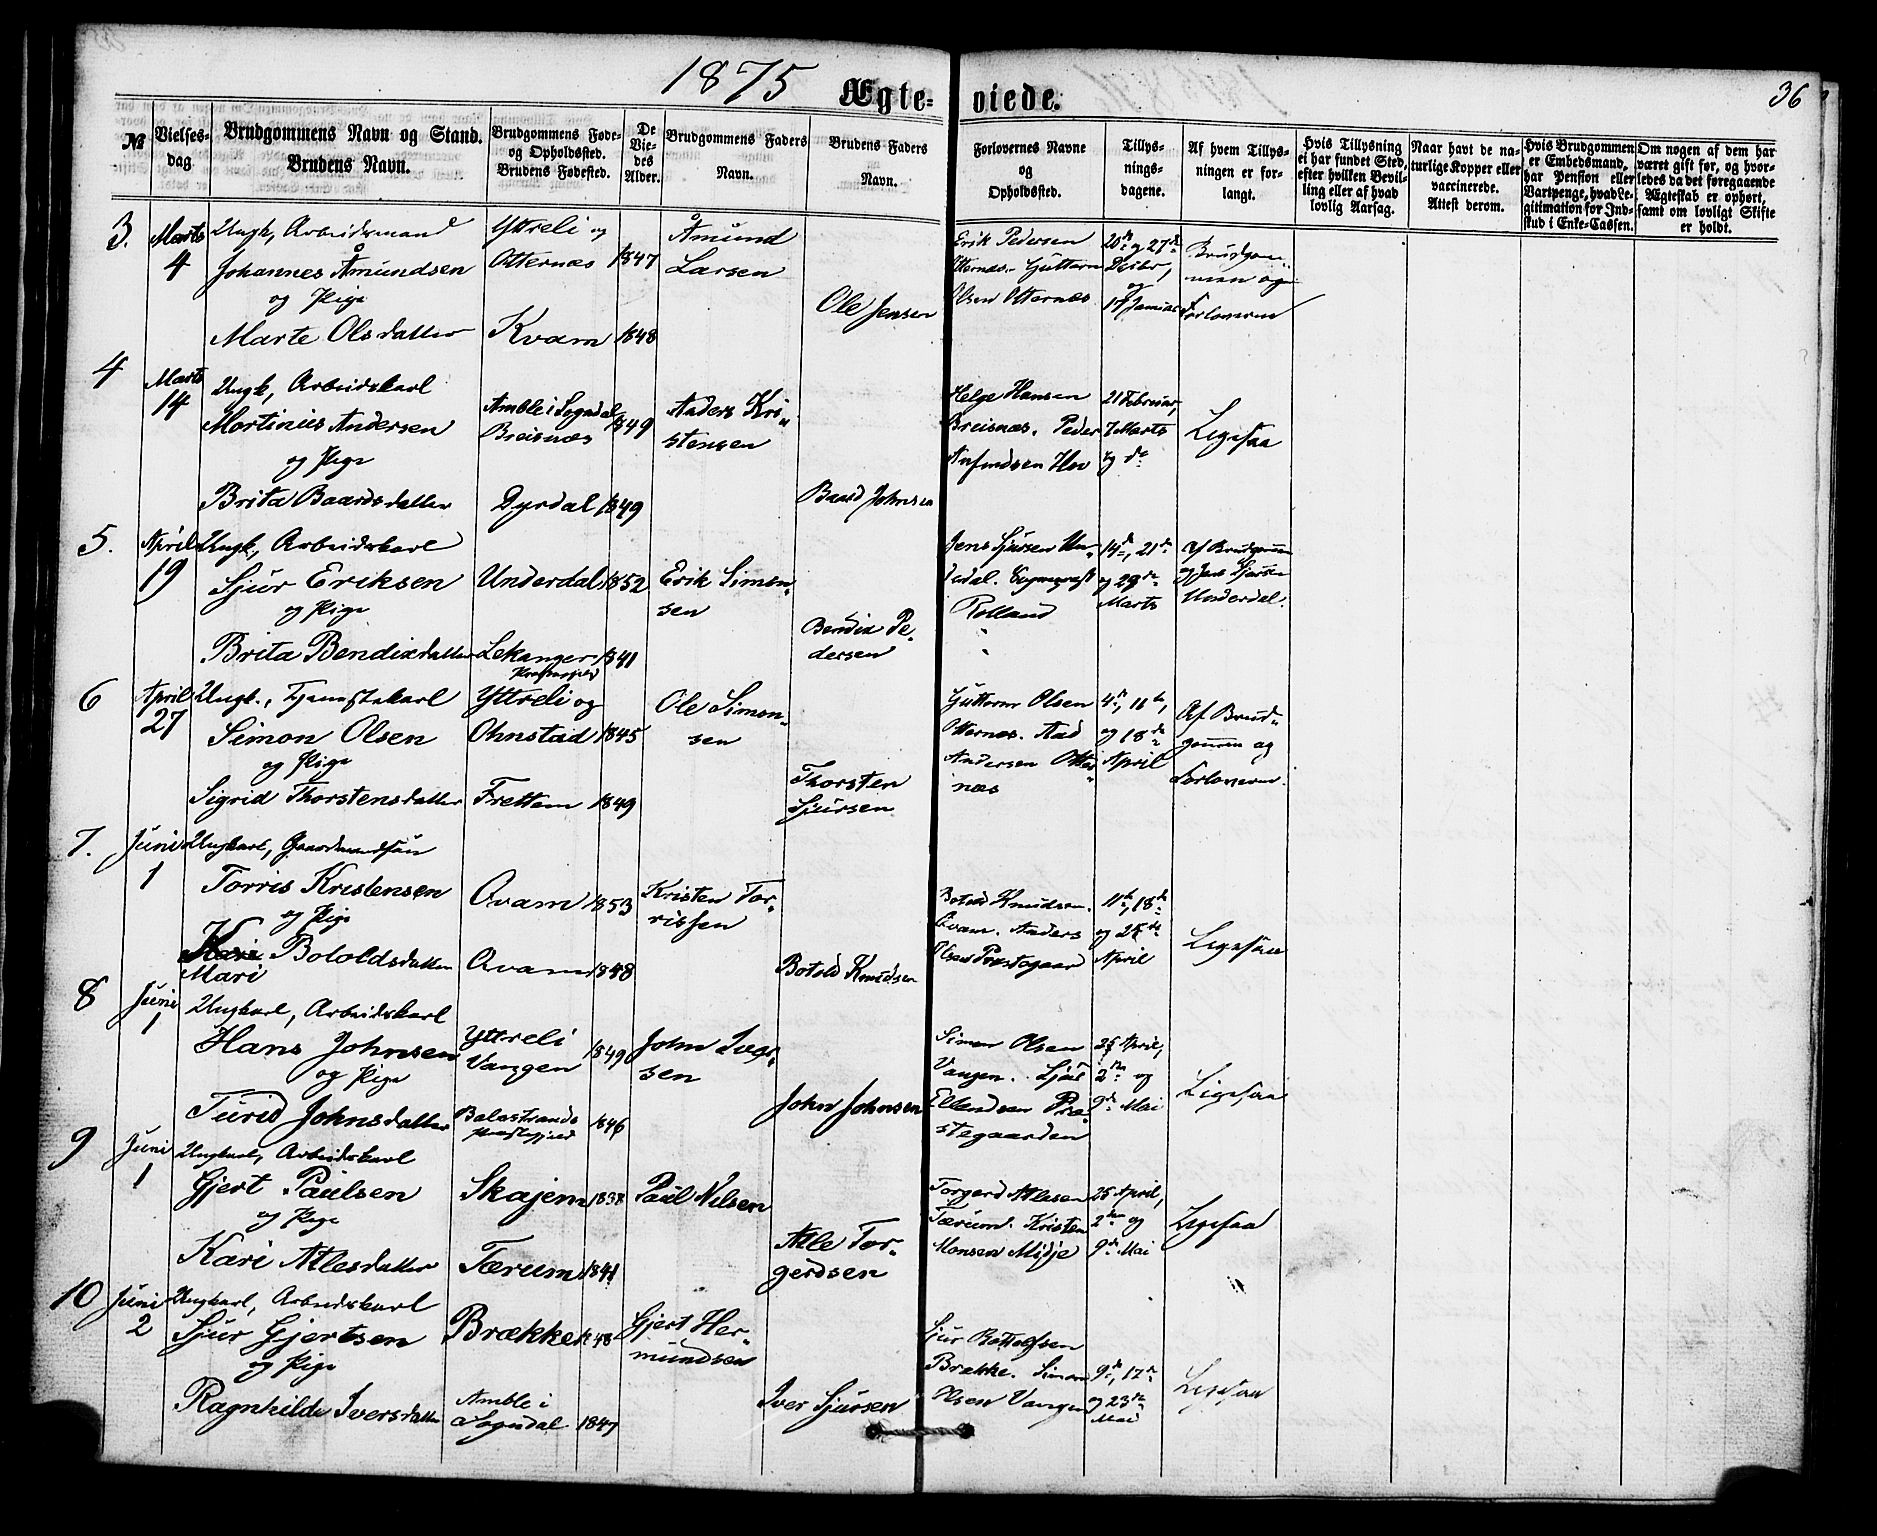 1875
Ægteviede.
36
№
Vielsesdag.
Brudgommens Navn og Stand.
Brudens Navn.
Brudgommens Føde- og Opholdssted.
Brudens Fødested.
De Viedes Alder.
Brudgommens Faders Navn.
Brudens Faders Navn.
Forlovernes Navne og Opholdssted.
Tillysningsdagene.
Af hvem Tillysningen er forlangt.
Hvis Tillysning ei har fundet Sted, efter hvilken Bevilling eller af hvad lovlig Aarsag.
Naar havt de naturlige Kopper eller vaccinerede. Attest derom.
Hvis Brudgommen er Embedsmand, har Pension eller Vartpenge, hvad Legitimation for Indskud i Enke-Cassen.
Om nogen af dem har været gift før, og hvorledes da det foregaaende Ægteskab er ophørt, samt om lovligt Skifte er holdt.
3. Marts 4 Ungk., Arbeidsmand
Johannes Åmundsen
og Pige
Marte Olsdatter
Yttreli og
Otternæs 1847
Kvam 1848
Åmund
Larsen
Ole Jensen
Erik Pedersen
Otternæs. Guttorm
Olsen Otternæs
20de og 27de
Decbr,
og
17 Januar
Brudgommen og
Forloverne
4 Marts 14 Ungk, Arbeidskarl
Martinius Andersen
og Pige
Brita Baardsdatter
Amble i Sogndal
Breisnæs 1849
Dyrdal 1849
Anders Kristensen
Baard Johnsen
Helge Hansen
Breisnæs. Peder
Anfindsen Hov
21 Februar,
7 Marts
og do
Ligesaa
5. April 19 Ungk, Arbeidskarl
Sjur Eriksen
og Pige
Brita Bendixdatter
Underdal 1852
Lekanger 1841
Præstegjeld
Erik Simonsen
Bendix Pedersen
Jens Sjursen Underdal.
Rolland
14de, 21de
og 29de
Marts
Af Brudgommen
og Jens Sjursen
Underdal.
6 April 27 Ungk., Tjenestekarl
Simon Olsen
og Pige
Sigrid Thorstensdatter
Yttreli og
Ohnstad 1845
Frettem 1849
Ole Simonsen
Thorsten
Sjursen
Guttorm Olsen
Otternæs. Aad
Andersen Otternæs
4de, 11te,
og 18de
April
Af Brudgommen og
Forloverne
7. Juni 1 Ungkarl, Gaardmandssøn
Torris Kristensen
og Pige
Kari Botoldsdatter
Mari
Qvam 1853
Qvam 1848
Kristen Torrissen
Botold Knudsen
Botold Knudsen
Qvam. Anders
Olsen Præstegaar
11te, 18de
og 25de
April
Ligesaa
8 Juni 1 Ungkarl, Arbeidskarl
Hans Johnsen
og Pige
Turid Johnsdatter
Yttreli
Vangen 1849
Balestrands
Præstegjeld 1846
John Iversen
John Johnsen
Simon Olsen
Vangen. Sjul
Ellendsen Præstegaarden
25 April,
2den og
9de Mai
Ligesaa
9 Juni 1 Ungkarl, Arbeidskarl
Gjert Paulsen
og Pige
Kari Atlesdatter
Skajem 1838
Tærum 1841
Paul Nilsen
Atle Torgerdsen
Torgerd Atlesen
Tærum. Kristen
Monsen Midje
25 April,
2den og
9de Mai
Ligesaa
10 Juni 2 Ungkarl, Arbeidskarl
Sjur Gjertsen
og Pige
Ragnhilde Iversdatter
Brække 1848
Amble i
Sogndal 1847
Gjert Hermundsen
Iver Sjursen
Sjur Bottolfsen
Brække. Simon
Olsen Vangen
9de, 17de
og 23de
Mai
Ligesaa